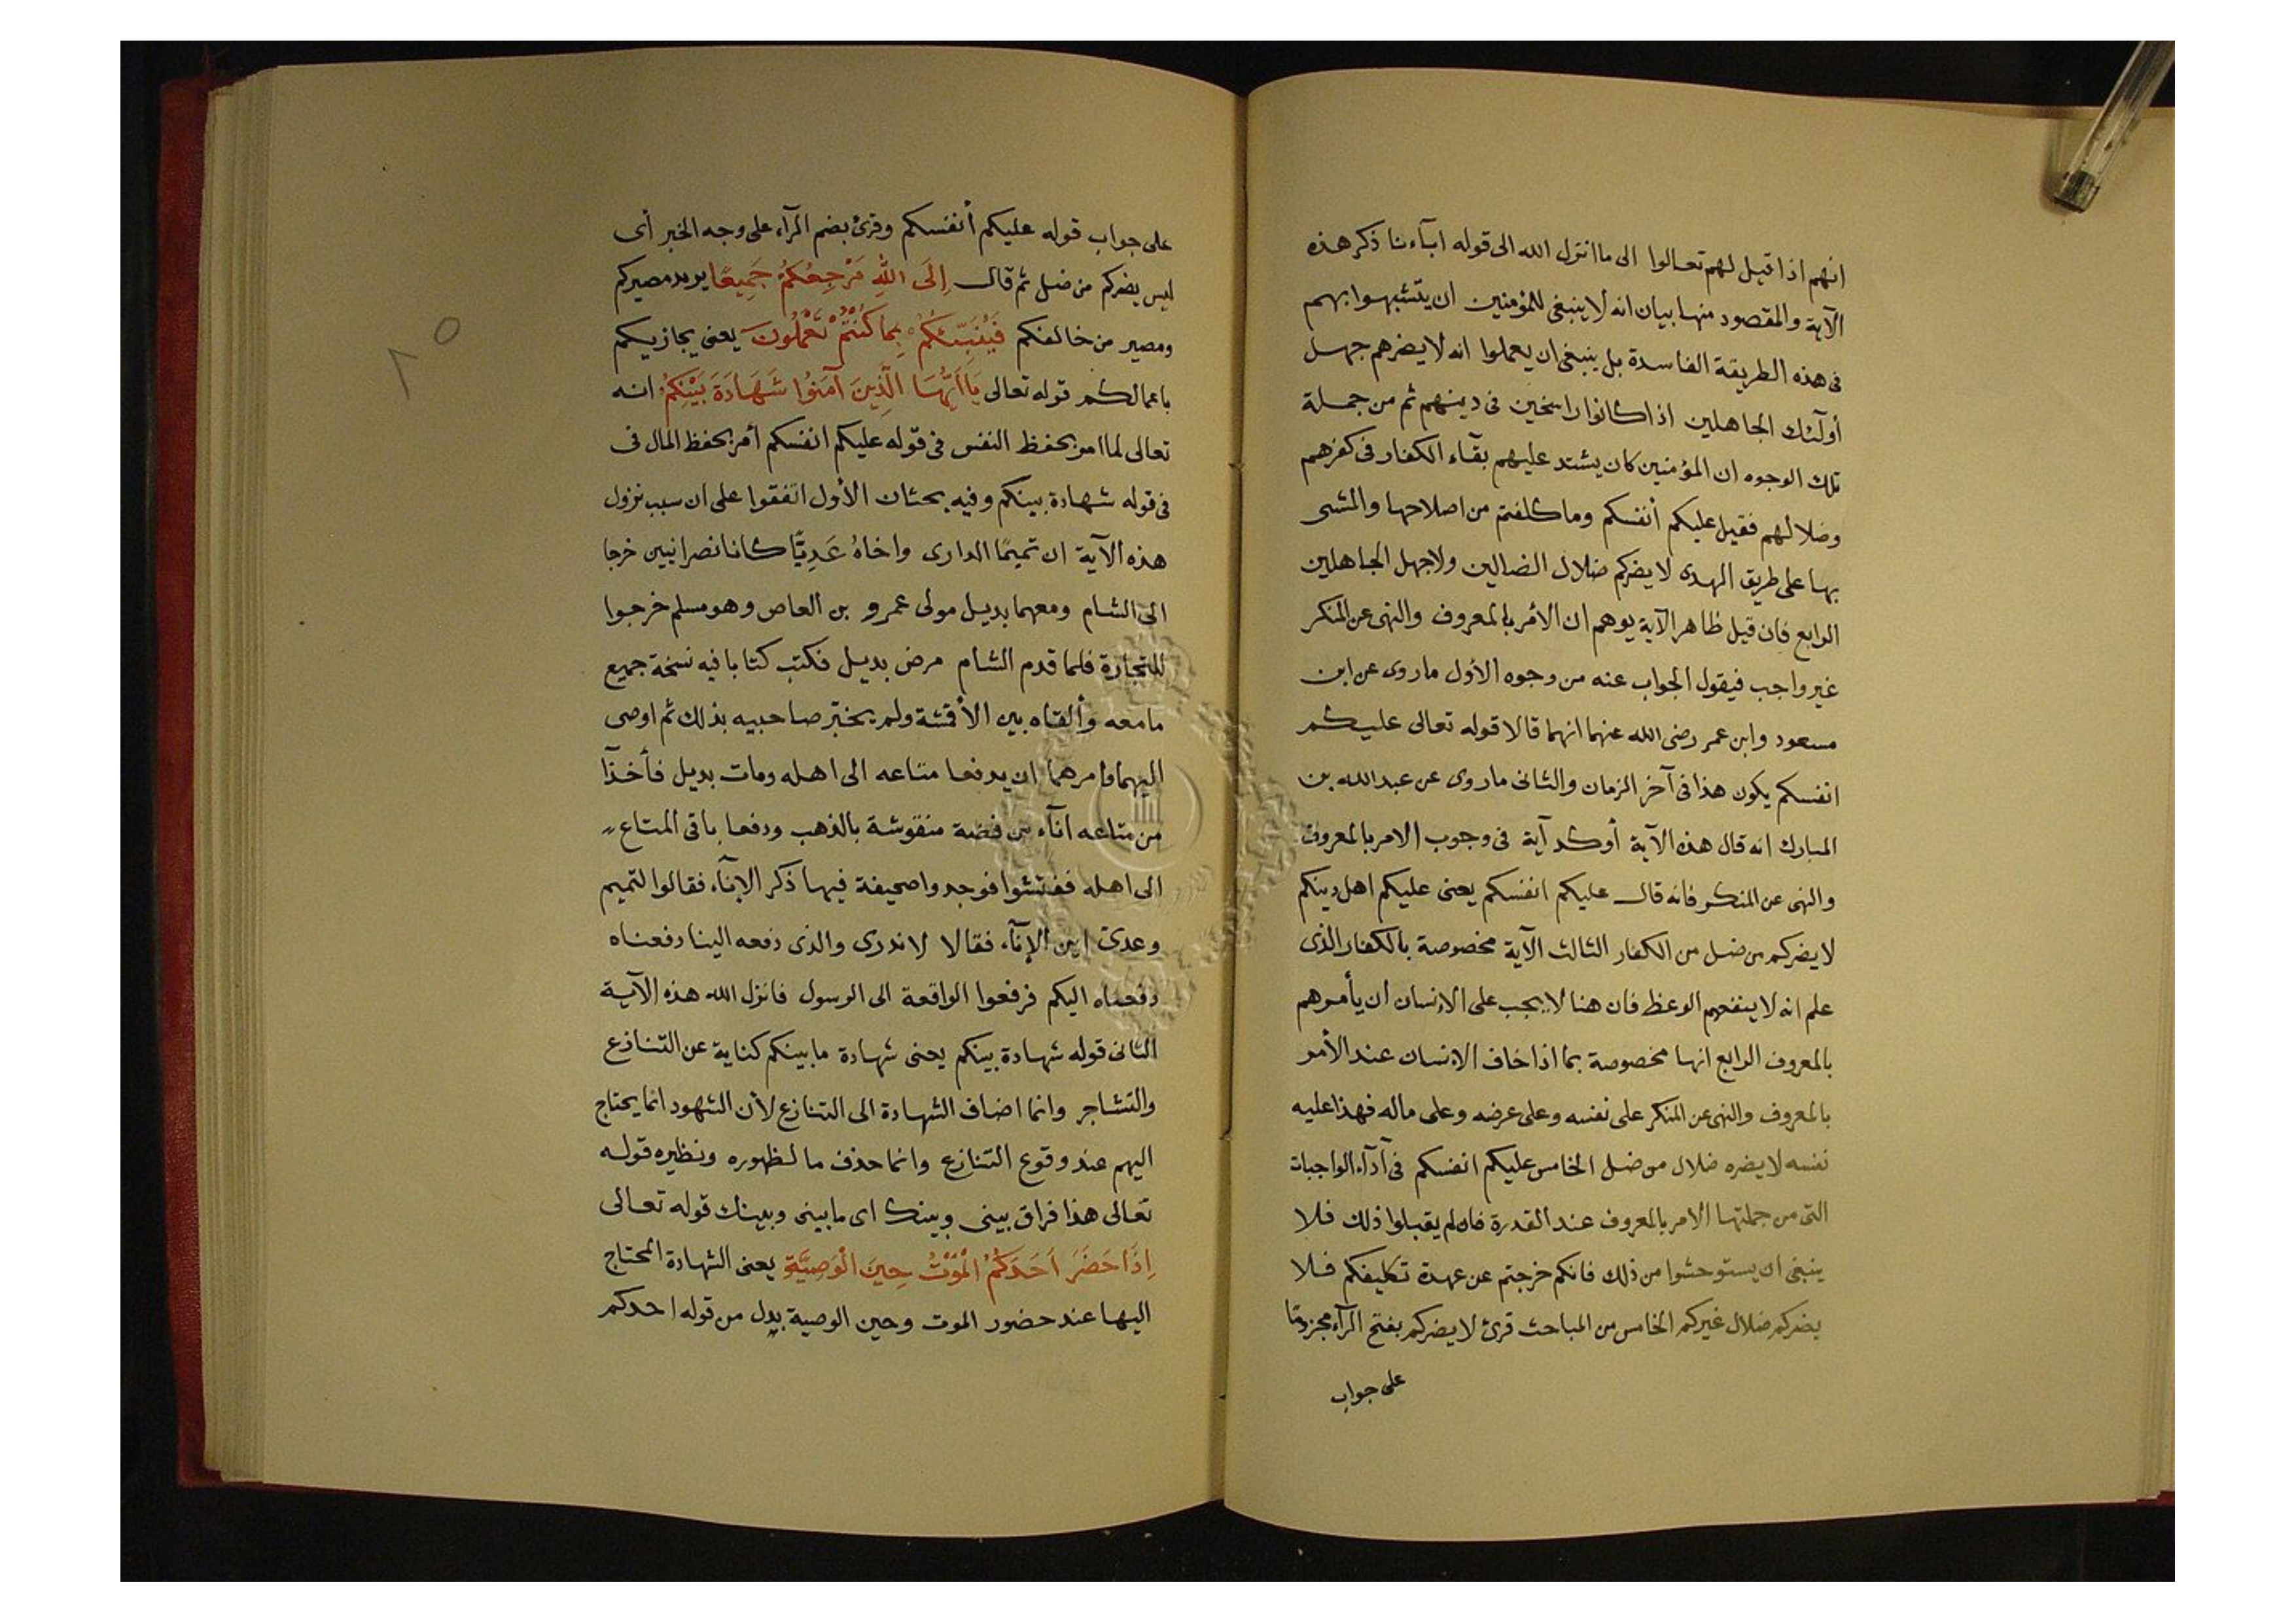 انهم اذا قيل لهم تعالوا الى ما انزل الله الى قوله ابآءنا ذكر هذه
الآية والمقصود منها بيان انه لا ينبغى للمؤمنين ان يتشبهوا بهم
فى هذه الطريقة الفاسدة بل ينبغى ان يعملوا انه لا يضرهم جهل
أولٓئك الجاهلين اذا كانوا راسخين فى دينهم ثم من جملة
تلك الوجوه ان المؤمنين كان يشتد عليهم بقآء الكفار فى كفرهم
وضلالهم فقيل عليكم أنفسكم وما كلفتم من اصلاحها والمشى
بها على طريق الهدى لا يضركم ضلال الضالين ولا جهل الجاهلين
الرابع فان قيل ظاهر الآية يوهم ان الأمر بالمعروف والنهى عن المنكر
غير واجب فيقول الجواب عنه من وجوه الأول ما روى عن ابن
مسعود وابن عمر رضى الله عنهما انهما قالا قوله تعالى عليكم
انفسكم يكون هذا فى آخر الزمان والثانى ما روى عن عبد الله بن
المبارك انه قال هذه الآية أوكد آية فى وجوب الامر بالمعروف
والنهى عن المنكر فانه قال عليكم انفسكم يعنى عليكم اهل دينكم
لا يضركم من ضل من الكفار الثالث الآية مخصوصة بالكفار الذى
علم انه لا ينفعهم الوعظ فان هنا لا يجب على الإنسان أن يأمرهم
بالمعروف الرابع انها مخصوصة بما اذا خاف الإنسان عند الأمر
بالمعروف والنهى عن المنكر على نفسه وعلى عرضه وعلى ماله فهذا عليه
نفسه لا يضره ضلال من ضل الخامس عليكم انفسكم فى أدآء الواجبات
التى من جملتها الامر بالمعروف عند القدرة فان لم يقبلوا ذلك فلا
ينبغى ان يستوحشوا من ذلك فانكم خرجتم عن عهدة تكليفكم فلا
يضركم ضلال غيركم الخامس من المباحث قرئ لا يضركم بفتح الرآء مجزومًا
على جواب
على جواب قوله عليكم أنفسكم وقرئ بضم الرآء على وجه الخبر أى
ليس يضركم من ضل ثم قال اِلَى اللهِ مَرْجِعُكُمْ جَمِيعًا يريد مصيركم
ومصير من خالفكم فَيُنَبِّئُكُمْ بِمَا كُنْتُمْ تَعْمَلُونَ يعنى يجازيكم
باعمالكم قوله تعالى يَا اَيُّهَا الَّذِينَ آمَنُوا شَهَادَةَ بَيْنِكُمْ انه
تعالى لما امر بحفظ النفس فى قوله عليكم انفسكم أمر بحفظ المال فى
فى قوله شهادة بينكم وفيه بحثان الأول اتفقوا على ان سبب نزول
هذه الآية ان تميمًا الدارى واخاهُ عَدِيًّا كانا نصرانيين خرجا
الى الشام ومعهما بديل مولى عمرو بن العاص وهو مسلم خرجوا
للتجارة فلما قدم الشام مرض بديل فكتب كتابا فيه نسخة جميع
ما معه وألقاه بين الأقشة ولم يخبّر صاحبيه بذلك ثم اوصى
اليهما وامرهما ان يدفعا متاعه الى اهله ومات بديل فأخذآ
من متاعه انآء من فضة منقوشة بالذهب ودفعا باقى المتاع
الى اهله ففتشوا فوجدوا صحيفة فيها ذكر الإنآء فقالوا لتميم
وعدىّ اين الإنآء فقالا لا ندرى والذى دفعه الينا دفعناه
دفعناه اليكم فرفعوا الواقعة الى الرسول فانزل الله هذه الآية
الثانى قوله شهادة بينكم يعنى شهادة ما بينكم كناية عن التنازع
والتشاجر وانما اضاف الشهادة الى التنازع لأن الشهود انما يحتاج
اليهم عند وقوع التنازع وانما حذف ما لظهوره ونظيره قوله
تعالى هذا فراق بينى وبينك اى ما بينى وبينك قوله تعالى
اِذَا حَضَرَ اَحَدَكُمُ الْمَوْتُ حِينَ الْوَصِيَّةِ يعنى الشهادة المحتاج
اليها عند حضور الموت وحين الوصية بدل من قوله احدكم